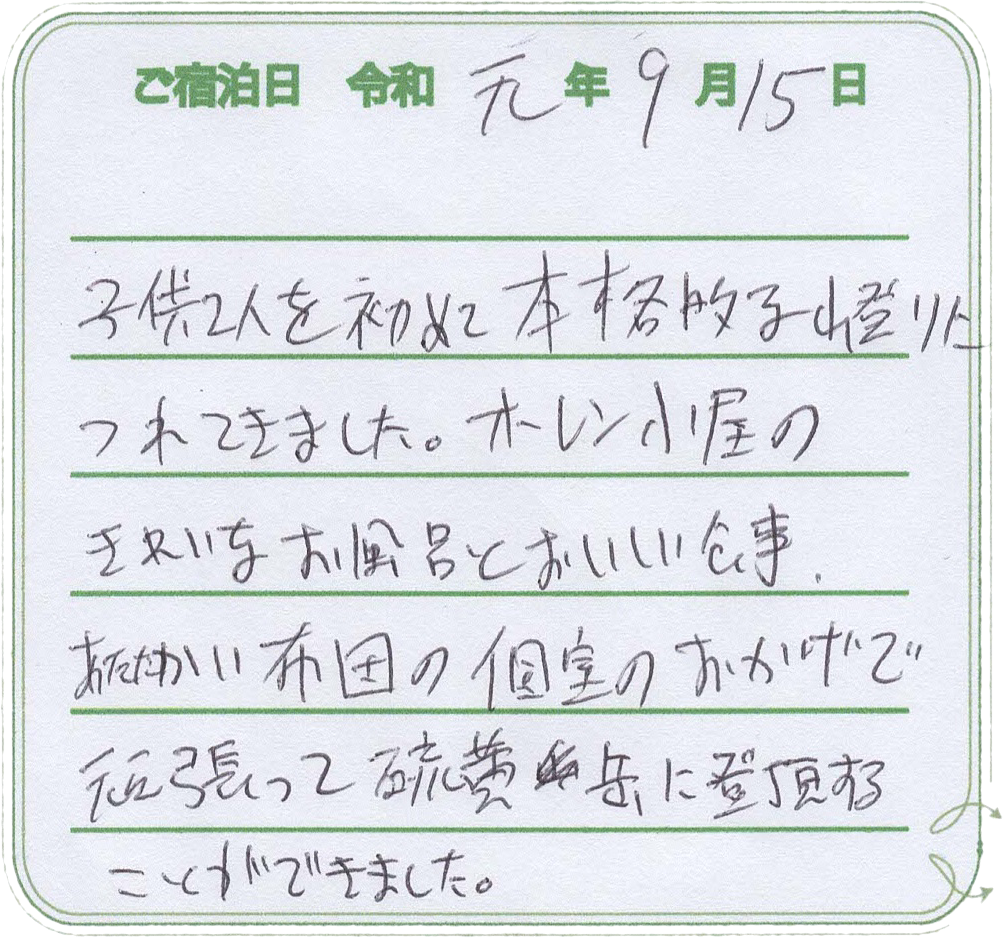 ご宿泊日 令和 元 年 9 月 15 日
子供2人を初めて本格的な山登りに
つれてきました。オーレン小屋の
きれいなお風呂とおいしい食事、
あたたかい布団の個室のおかげで
頑張って硫黄岳に登頂する
ことができました。